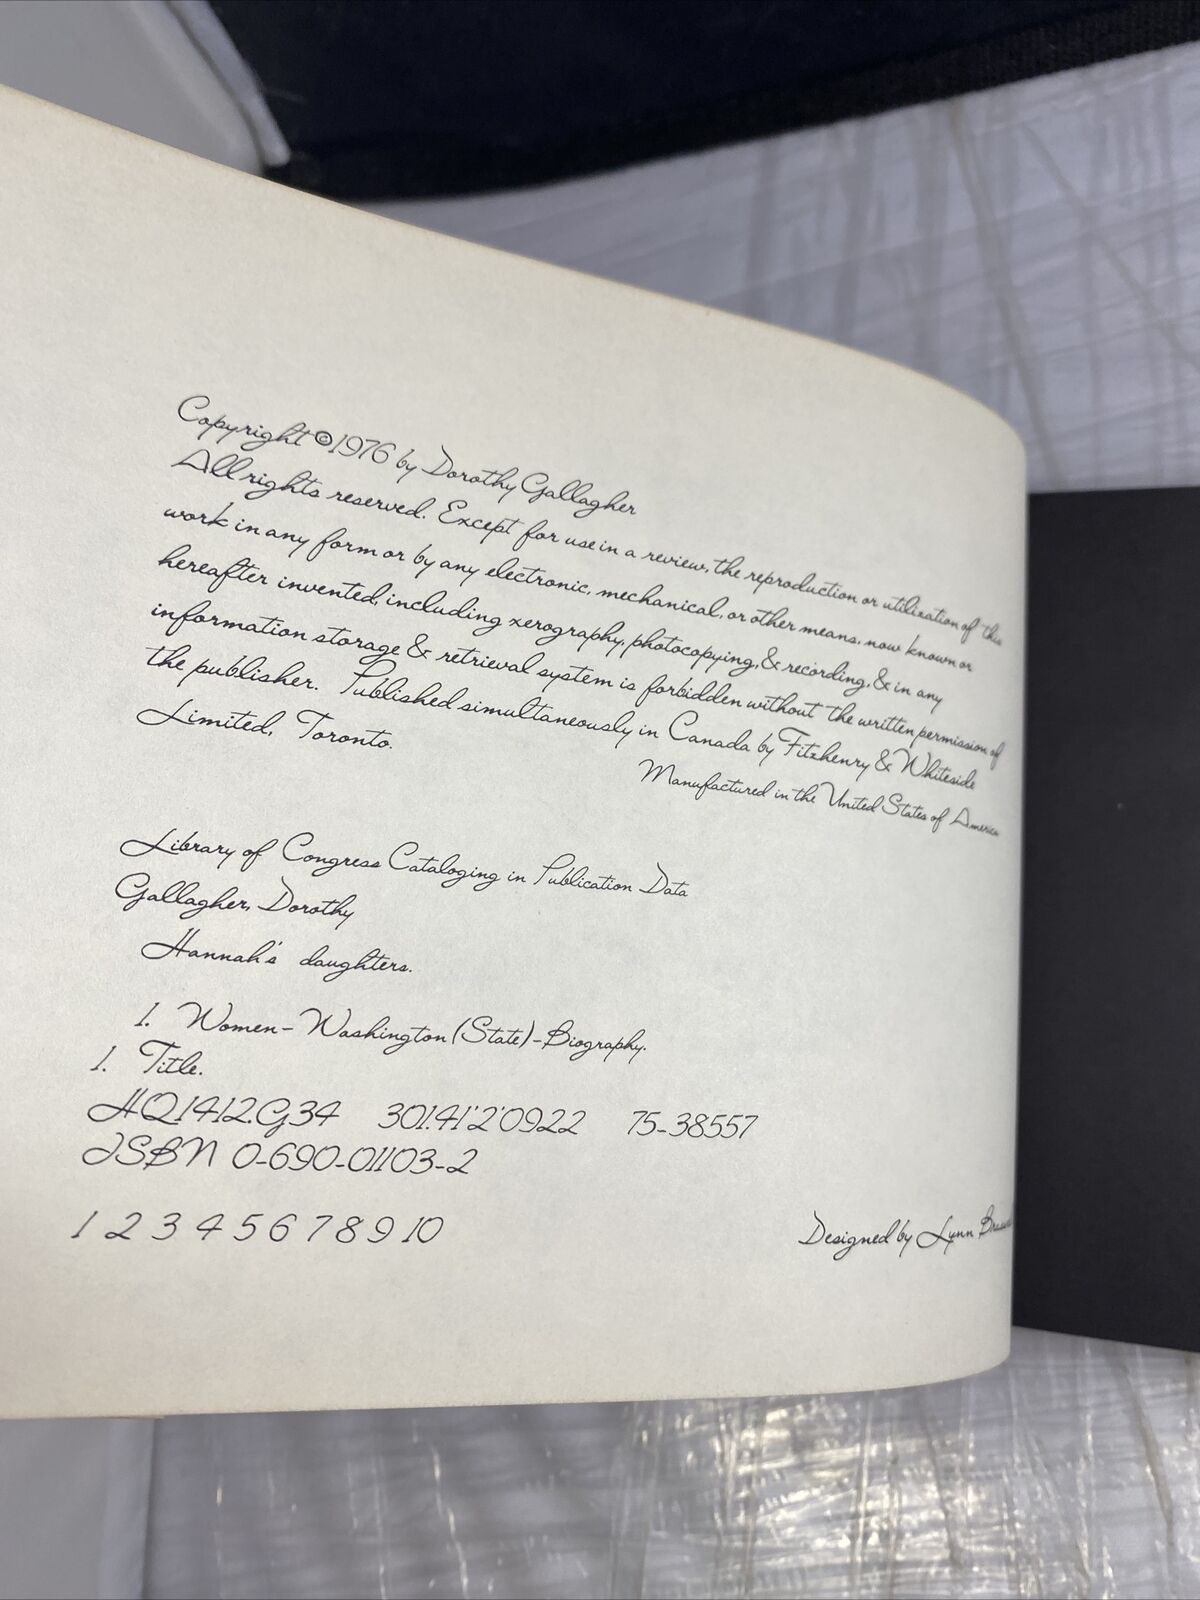 Copyright ©1976 by Dorothy Gallagher
All rights reserved. Except for use in a review, the reproduction or utilization of this
work in any form or by any electronic, mechanical, or other means, now known or
hereafter invented, including xerography, photocopying, & recording, & in any
information storage & retrieval system is forbidden without the written permission of
the publisher. Published simultaneously in Canada by Fitzhenry & Whiteside
Limited, Toronto.
Manufactured in the United States of America
Library of Congress Cataloging in Publication Data
Gallagher, Dorothy
Hannah's daughters.
1. Women-Washington (State)-Biography.
1. Title.
HQ1412.G34 301.41'2'0922 75-38557
ISBN 0-690-01103-2
1 2 3 4 5 6 7 8 9 10
Designed by Lynn